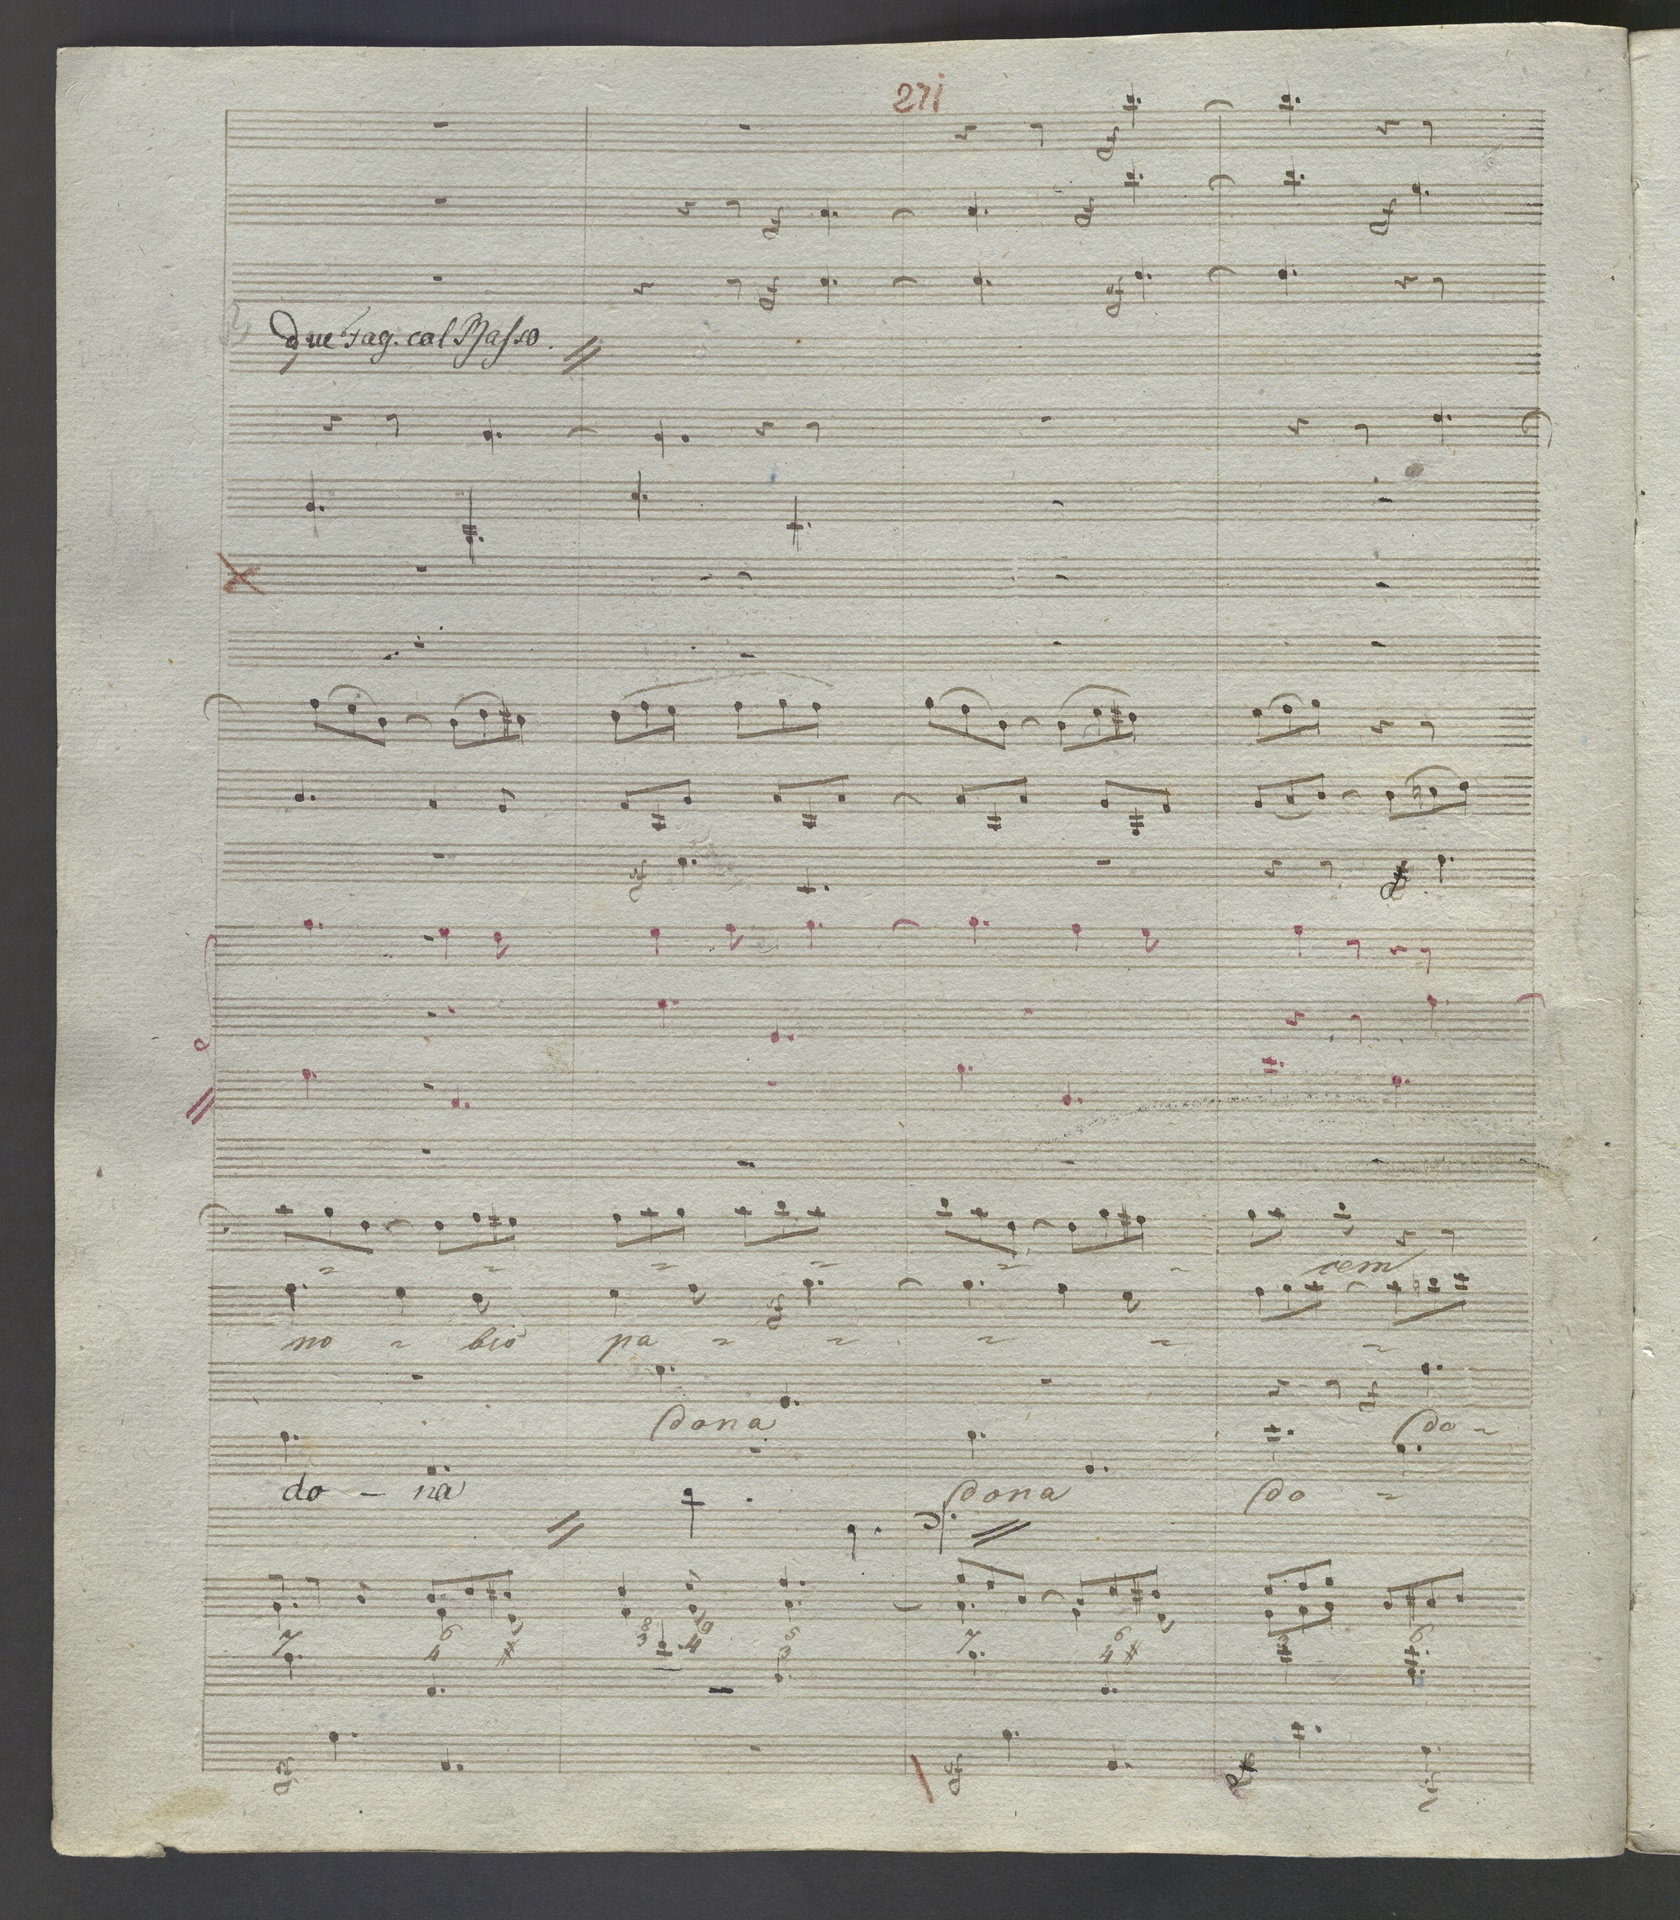 271
due Fag. col Basso.
cem
no - bis pa - - - - -
dona do -
do - na dona do -
7 6 4 # 8 3 10 4 5 3 7 6 4 # 6